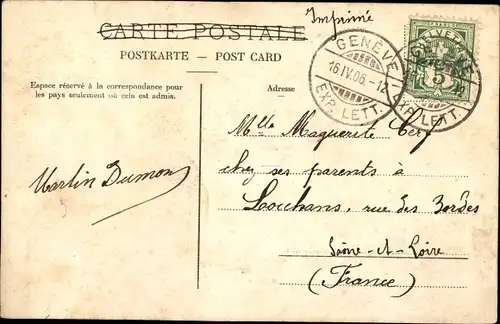 CARTE POSTALE
Imprimé
POSTKARTE — POST CARD
Espace réservé à la correspondance pour
les pays seulement où cela est admis.
Adresse
GENÈVE
16 IV.06-12
EXP. LETT.
HELVETIA
GENÈVE
5
EXP. LETT.
Mlle Maguerite
chez ses parents à
Louhans, rue des Bordes
Saône-et-Loire
(France)
Martin Dumon